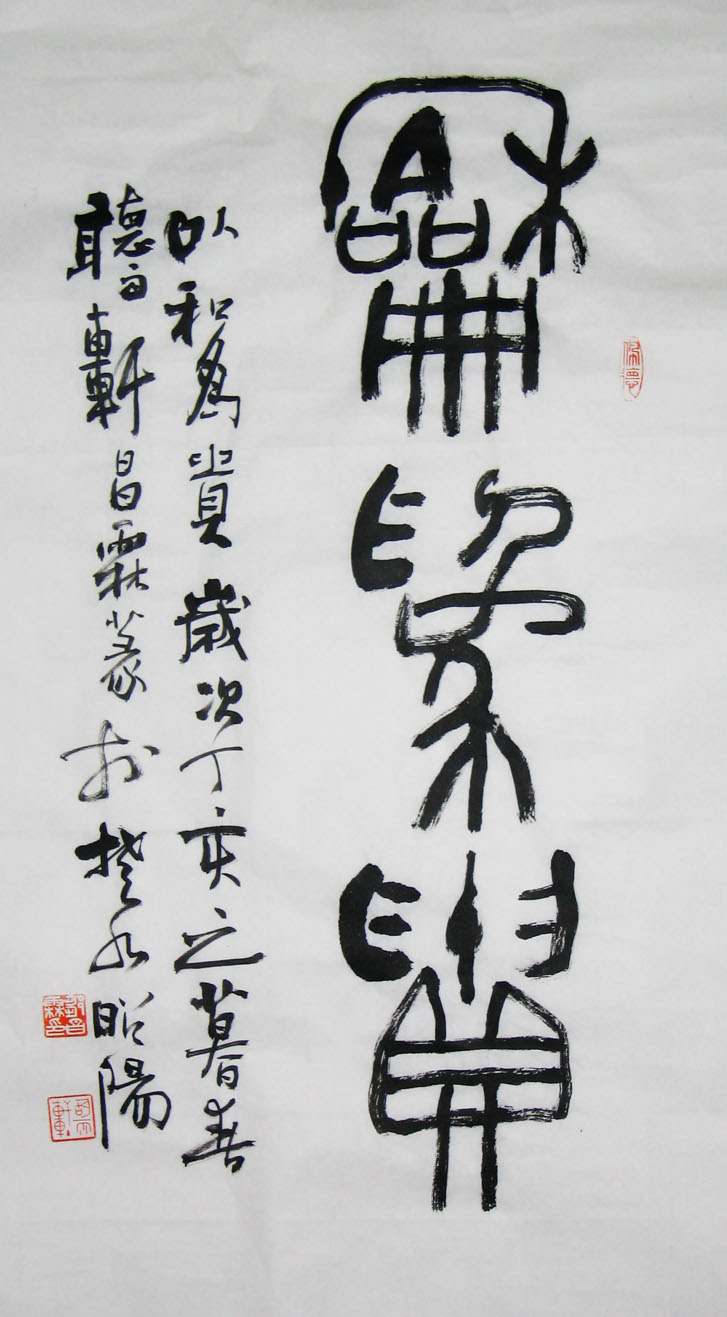 龢為貴
以和為貴歲次丁亥之暮春
聽雨軒昌霖篆於楚水昭陽